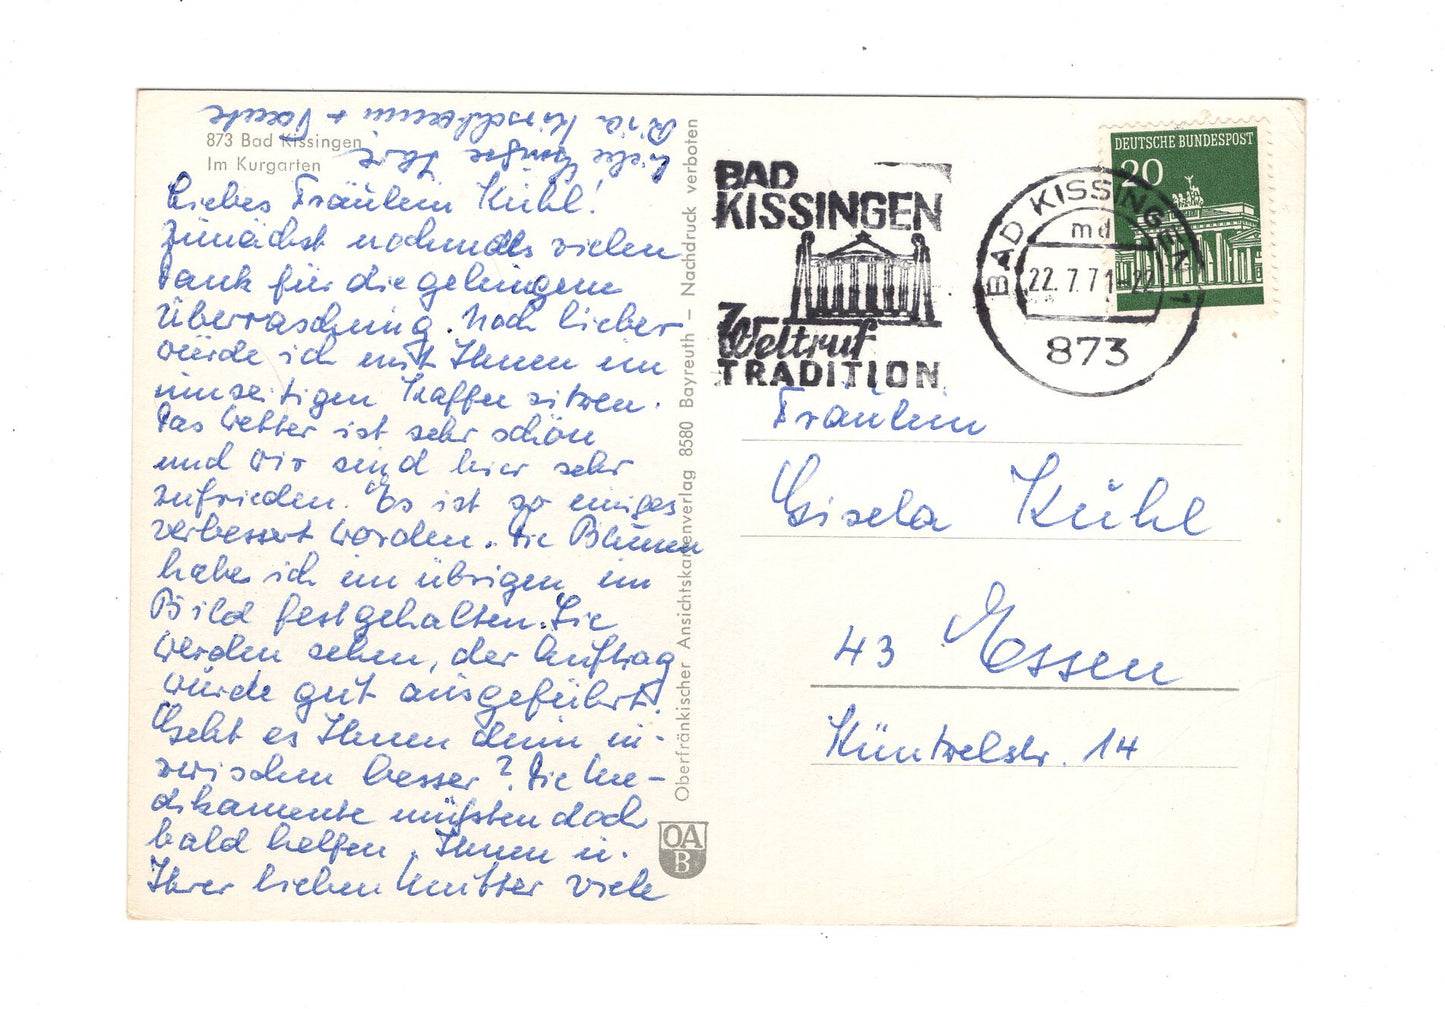 873 Bad Kissingen
Im Kurgarten
Liebes Fräulein Kühl!
Zunächst nochmals vielen
Dank für die gelungene
Überraschung. Noch lieber
würde ich mit Ihnen im
einseitigen Kaffee sitzen.
Das Wetter ist sehr schön
und wir sind hier sehr
zufrieden. Es ist so einiges
verbessert worden. Die Blumen
habe ich im übrigen im
Bild festgehalten. Sie
werden sehen, der Auftrag
wurde gut ausgeführt.
Geht es Ihnen denn in-
zwischen besser? Die Me-
dikamente müßten doch
bald helfen. Ihnen u.
Ihrer lieben Mutter viele
liebe Grüße Ihre
Ria Kirschbaum + Tante
Oberfränkischer Ansichtskartenverlag 8580 Bayreuth – Nachdruck verboten
OA
B
BAD
KISSINGEN
Weltruf
TRADITION
BAD KISSINGEN 1
md
22.7.71-22
873
DEUTSCHE BUNDESPOST
20
Fräulein
Gisela Kühl
43 Essen
Küntzelstr. 14